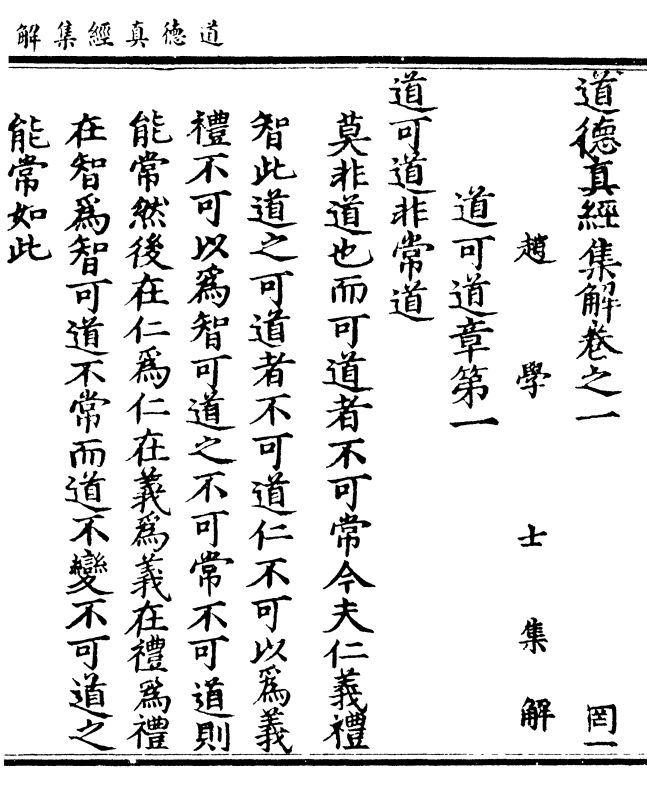 道德真經集解
道德真經集解卷之一 罔一
趙學士集解
道可道章第一
道可道非常道
莫非道也而可道者不可常今夫仁義禮
智此道之可道者不可道仁不可以爲義
禮不可以爲智可道之不可常不可道則
能常然後在仁爲仁在義爲義在禮爲禮
在智爲智可道不常而道不變不可道之
能常如此